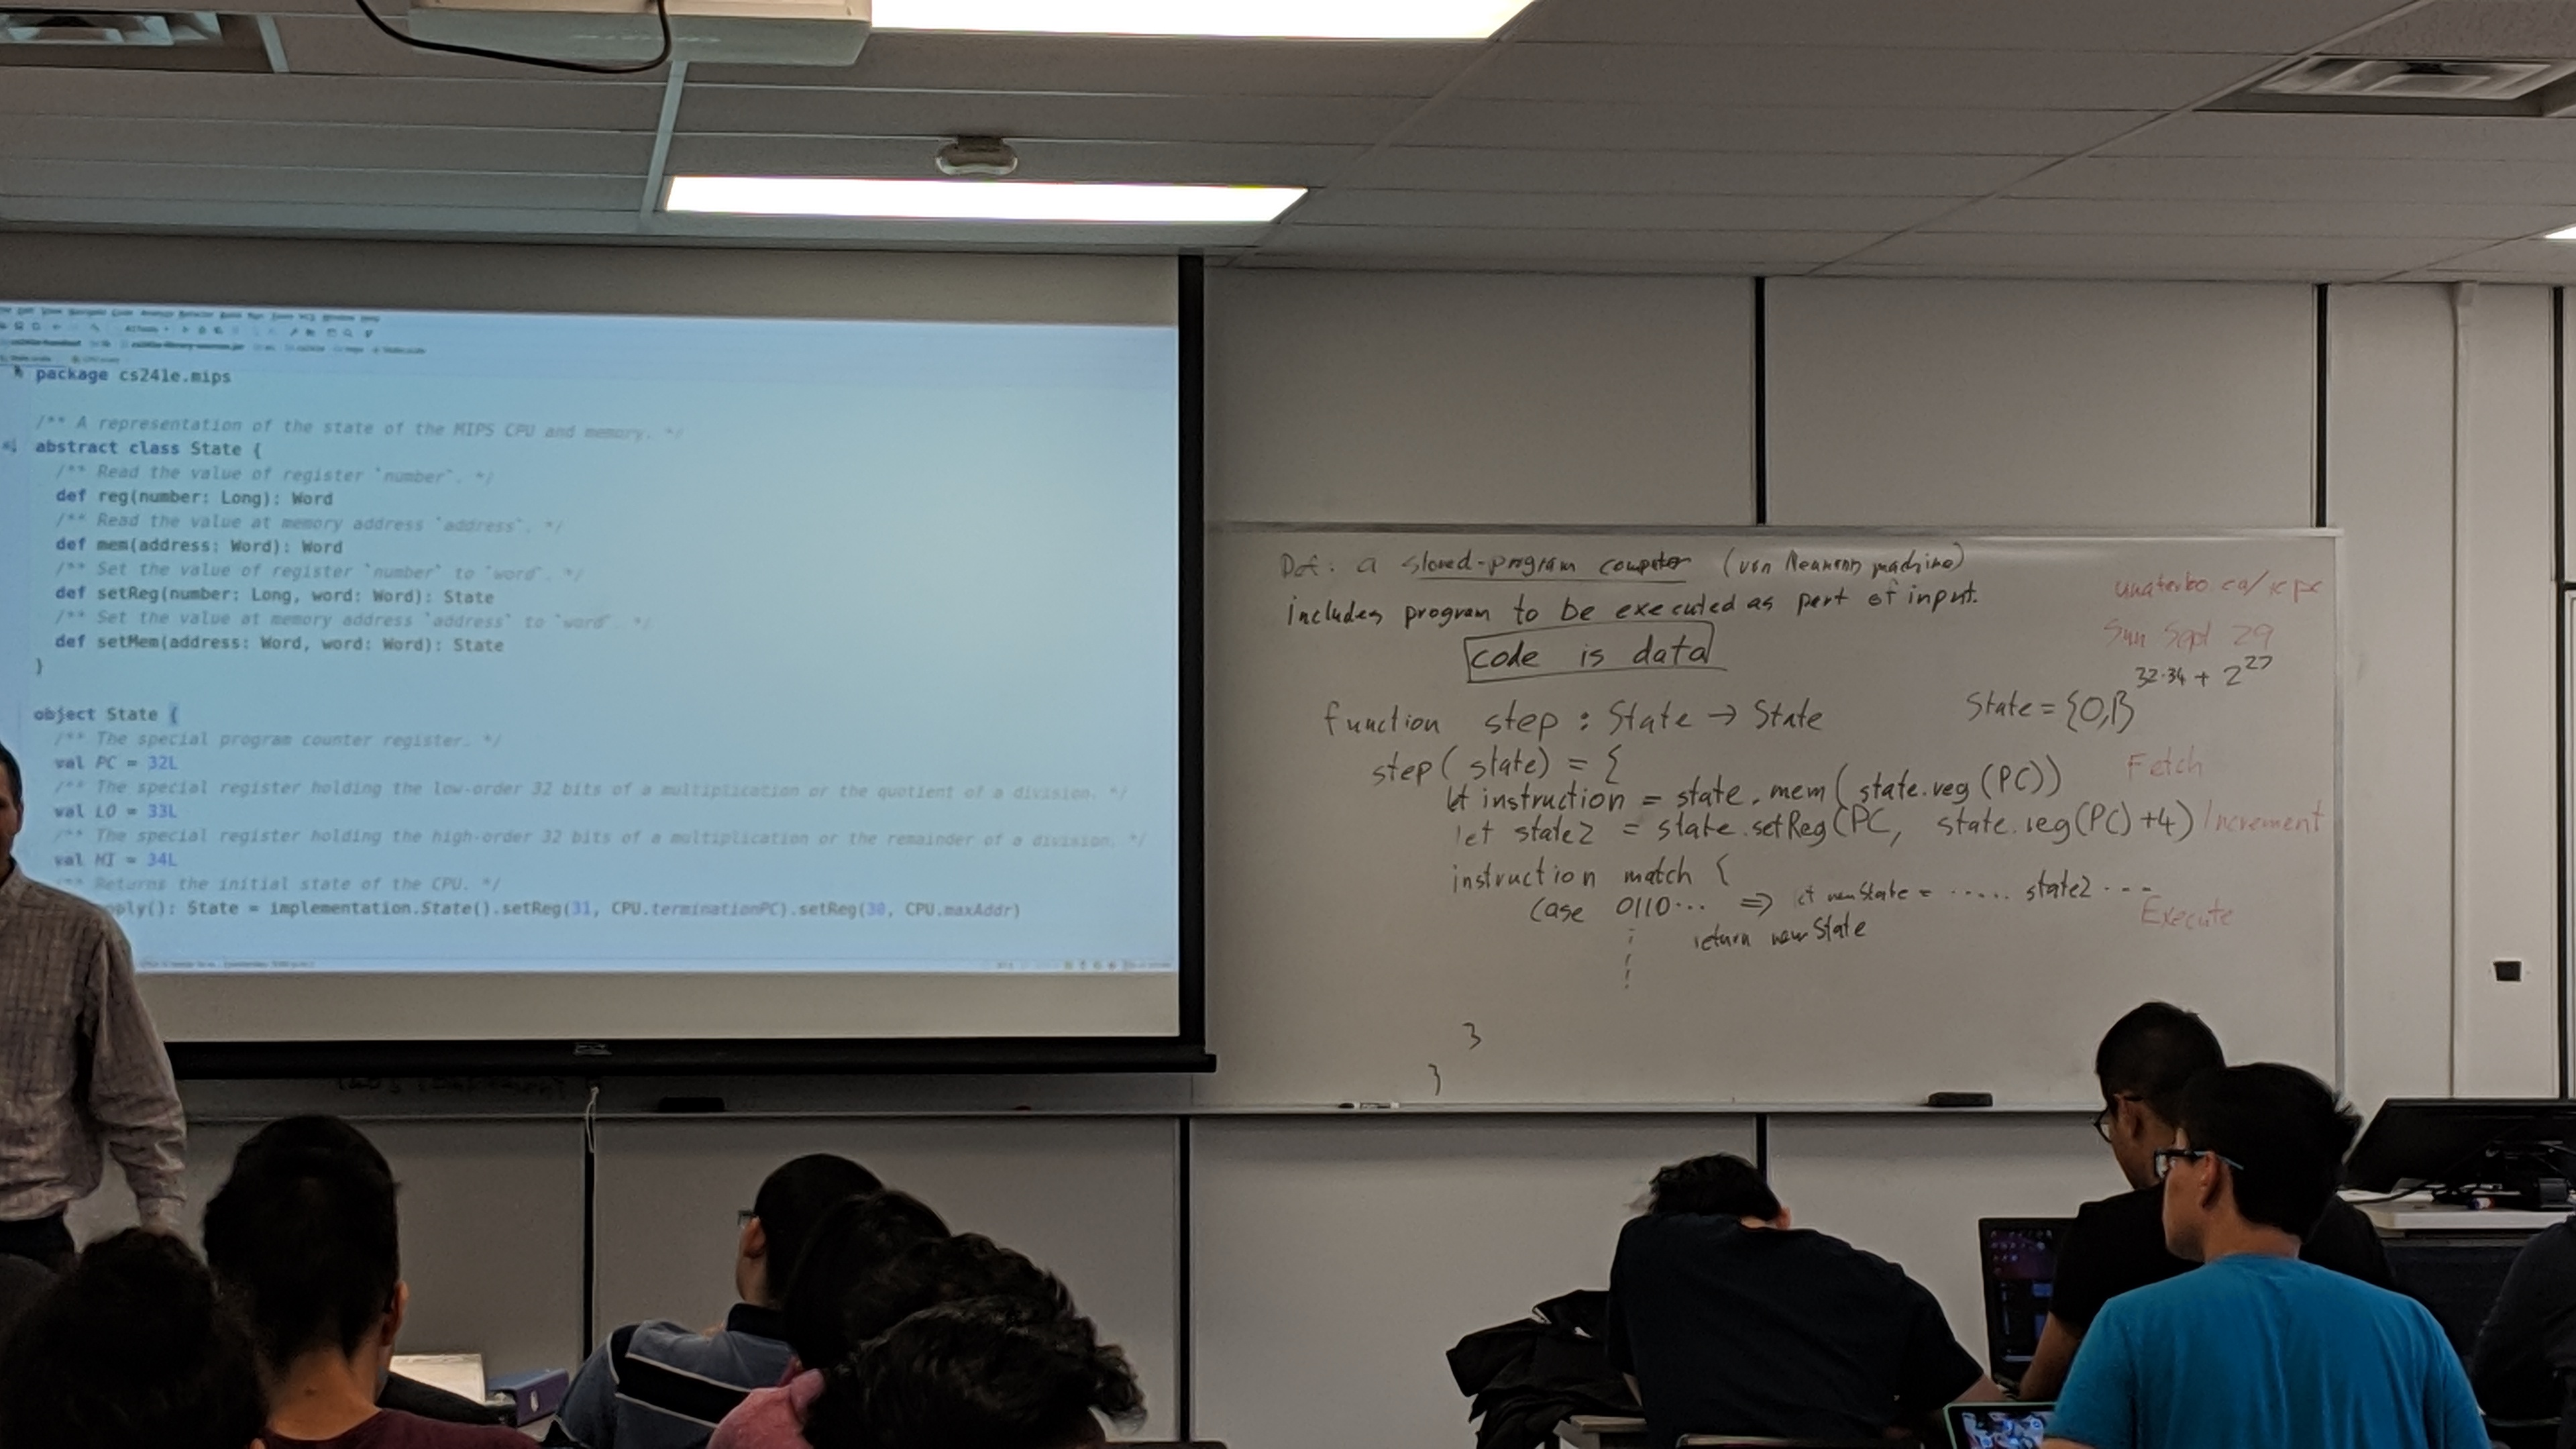 package cs241e.mips
/** A representation of the state of the MIPS CPU and memory. */
abstract class State {
/** Read the value of register `number`. */
def reg(number: Long): Word
/** Read the value at memory address `address`. */
def mem(address: Word): Word
/** Set the value of register `number` to `word`. */
def setReg(number: Long, word: Word): State
/** Set the value at memory address `address` to `word`. */
def setMem(address: Word, word: Word): State
}
object State {
/** The special program counter register. */
val PC = 32L
/** The special register holding the low-order 32 bits of a multiplication or the quotient of a division. */
val LO = 33L
/** The special register holding the high-order 32 bits of a multiplication or the remainder of a division. */
val HI = 34L
Returns the initial state of the CPU. */
ply(): State = implementation.State().setReg(31, CPU.terminationPC).setReg(30, CPU.maxAddr)
Def: a stored-program computer (von Neumann machine)
includes program to be executed as part of input.
code is data
uwaterloo.ca/icpc
Sun Sept 29
function step : State → State
State = {0,1}^32·34 + 2^27
step( state) = {
let instruction = state.mem( state.reg (PC)) Fetch
let state2 = state.setReg(PC, state.reg(PC)+4) Increment
instruction match {
case 0110... ⇒ let newState = ...... state2 ... Execute
return newState
}
}